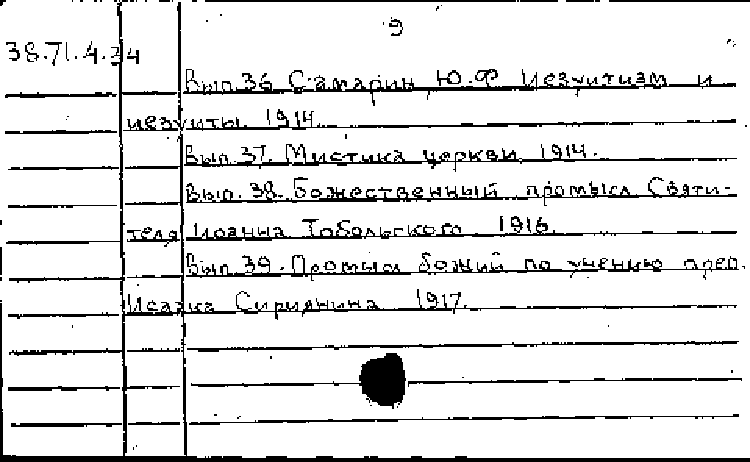 9
38.71.4.34
Вып.36 Самарин Ю.Ф Иезуитизм и
иезуиты. 1914.
Вып.37. Мистика церкви. 1914.
Вып.38. Божественный промысл Святи-
теля Иоанна Тобольского 1916.
Вып.39. Промысл божий по учению преп.
Исаака Сириянина 1917.